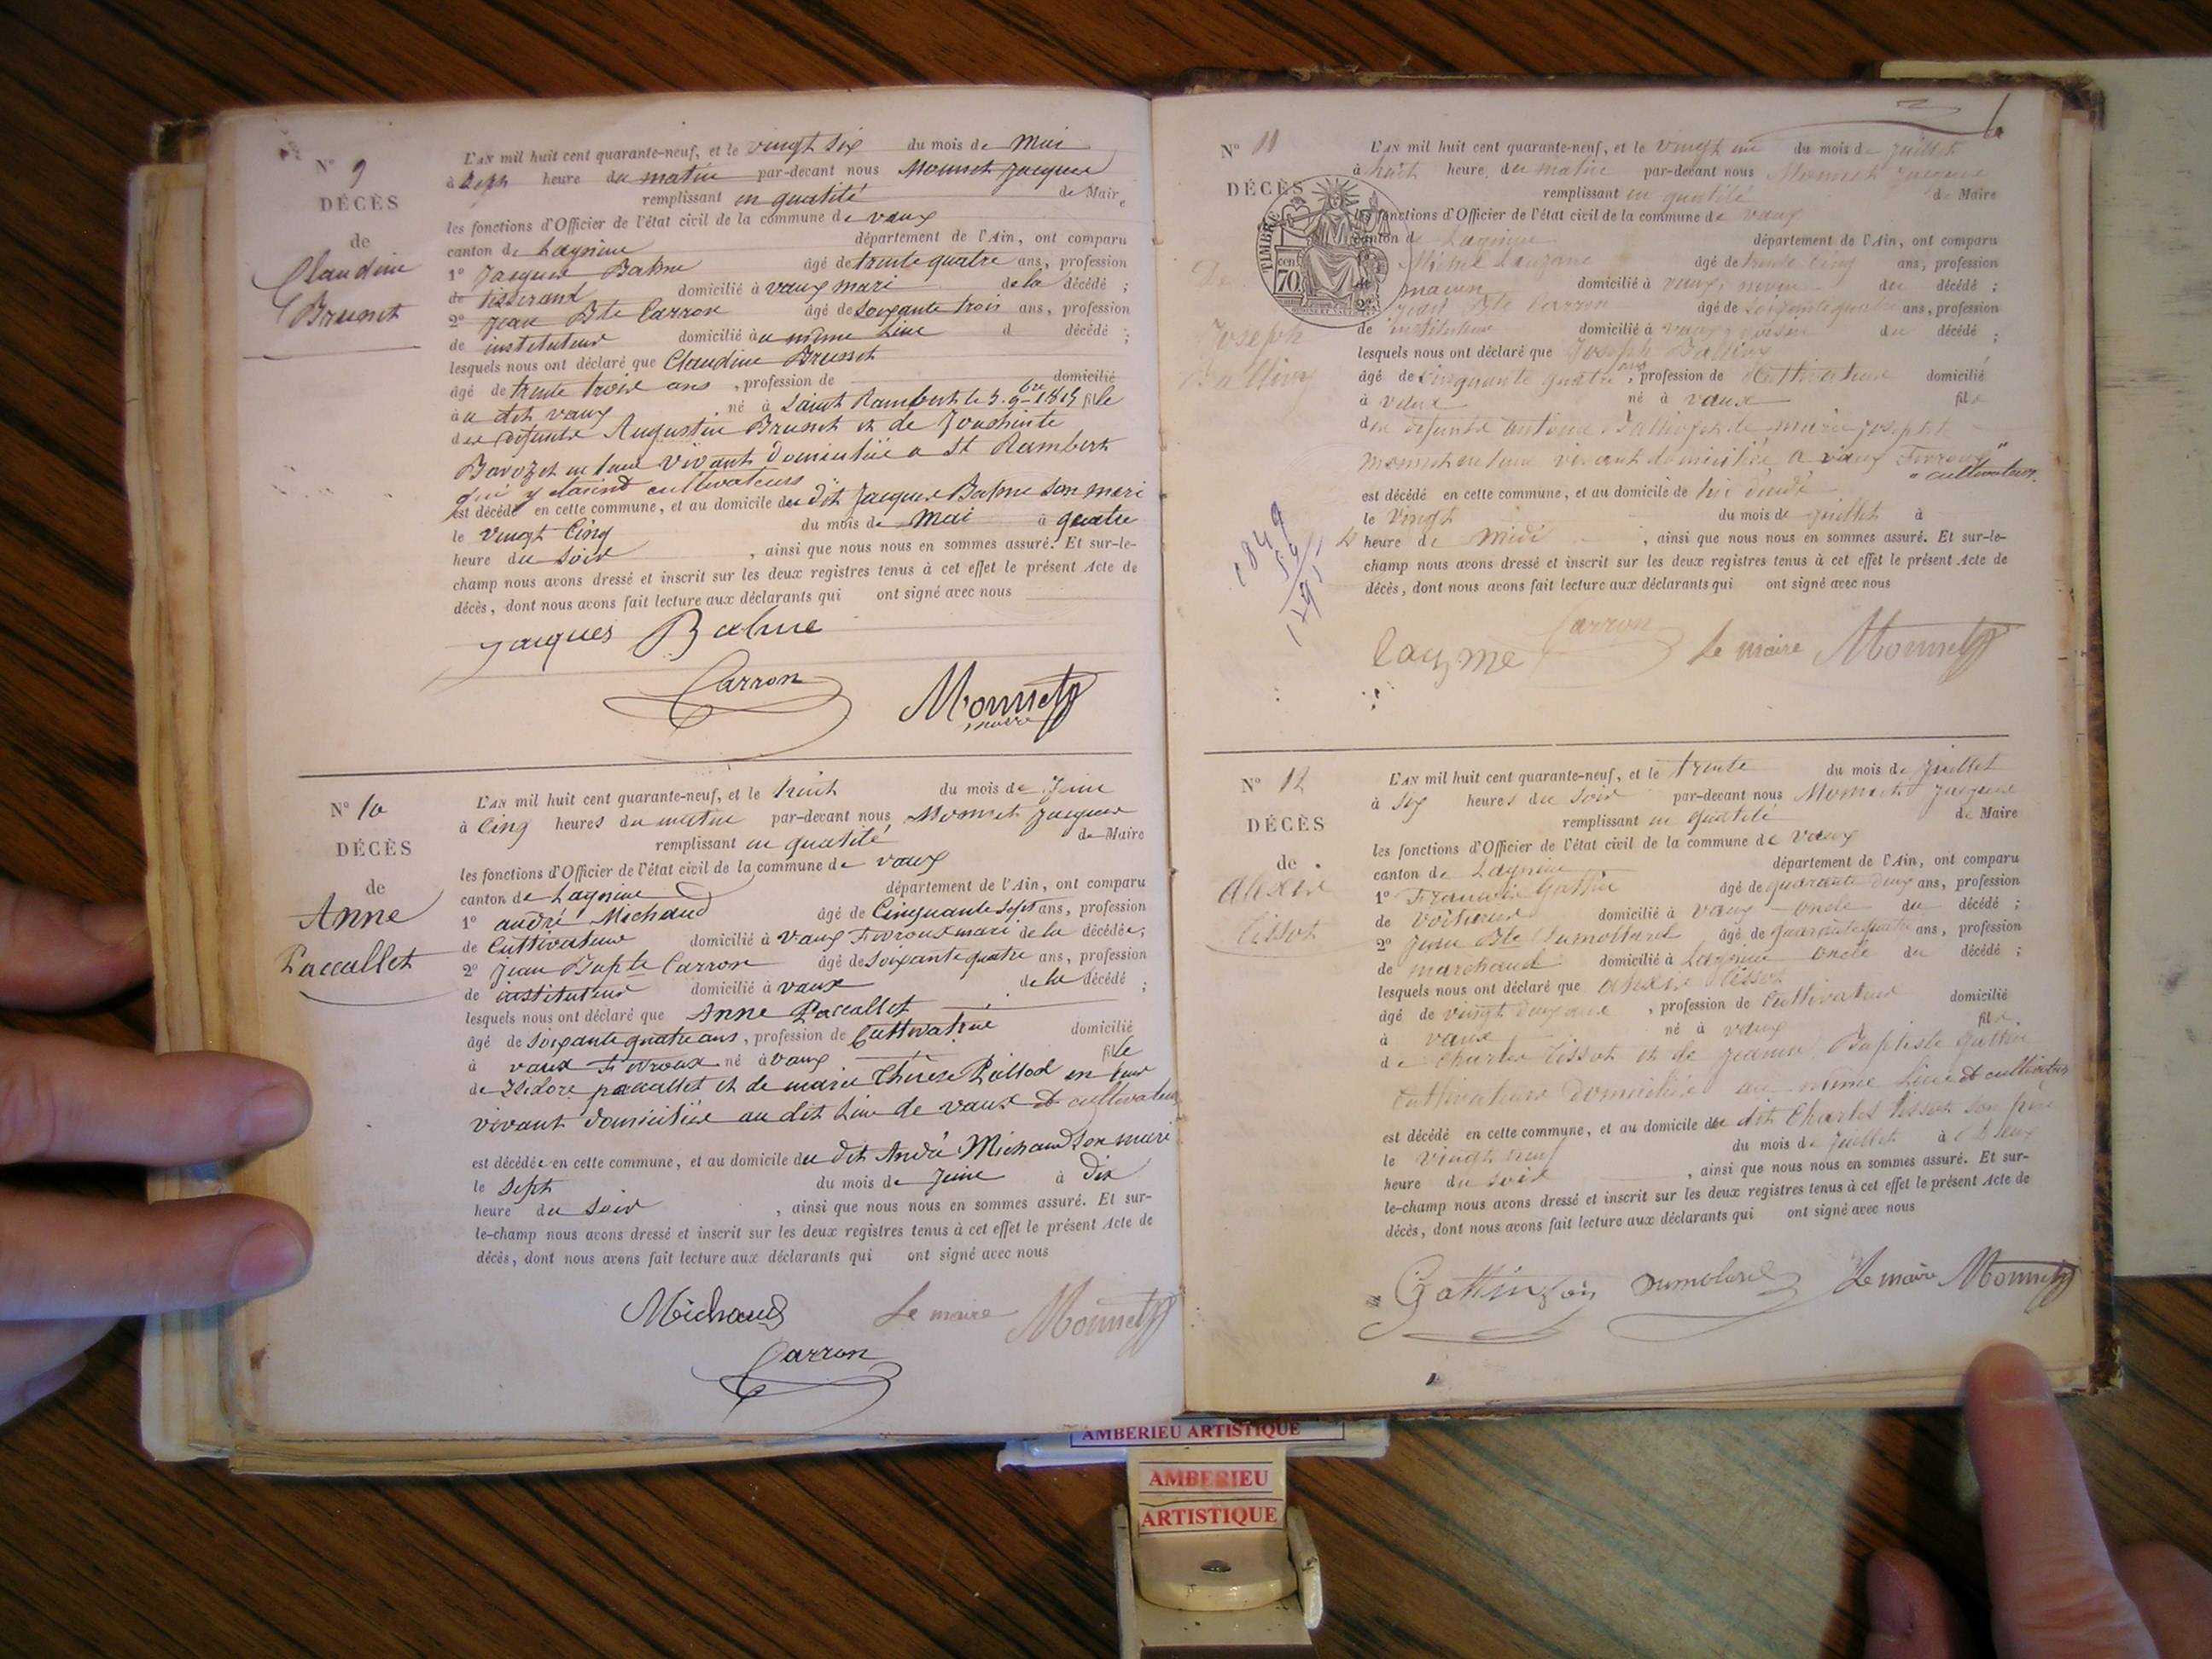 N° 9
DÉCÈS
de
Claudine
Brunet
L'AN mil huit cent quarante-neuf, et le vingt six du mois de Mai
à sept heure du matin par-devant nous Monnet Jacques
remplissant en qualité de Maire
les fonctions d'Officier de l'état civil de la commune de vaux
canton de Lagnieu département de l'Ain, ont comparu
1° Jacques Balme âgé de trente quatre ans, profession
de tisserand domicilié à vaux mari de la décédé ;
2° Jean Bte Carron âgé de soixante trois ans, profession
de instituteur domicilié au même Lieu d décédé ;
lesquels nous ont déclaré que Claudine Brunet
âgé de trente trois ans , profession de domicilié
à u dit vaux né à Saint Rambert le 3 9bre 1815 fille
des défunts Augustin Brunet et de
en leur vivant domiciliés a St Rambert
qui y étaient cultivateurs
est décédé en cette commune, et au domicile du dit Jacques Balme son mari
le vingt Cinq du mois de Mai à quatre
heure du soir , ainsi que nous nous en sommes assuré. Et sur-le-
champ nous avons dressé et inscrit sur les deux registres tenus à cet effet le présent Acte de
décès, dont nous avons fait lecture aux déclarants qui ont signé avec nous
Jacques Balme
Carron Monnet
maire
N° 10
DÉCÈS
de
Anne
Paccallet
L'AN mil huit cent quarante-neuf, et le huit du mois de Juin
à Cinq heures du matin par-devant nous Monnet Jacques
remplissant en qualité de Maire
les fonctions d'Officier de l'état civil de la commune de vaux
canton de Lagnieu département de l'Ain, ont comparu
1° andré Michaud âgé de Cinquante sept ans, profession
de Cultivateur domicilié à Vaux Fevroux mari de la décédée;
2° Jean Bapte Carron âgé de soixante quatre ans, profession
de instituteur domicilié à vaux de la décédé ;
lesquels nous ont déclaré que Anne Paccallet
âgé de soixante quatre ans , profession de Cultivatrice domicilié
à vaux Fevroux né à vaux fille
de Isidore paccallet et de marie Thérèse en leur
vivant domiciliés au dit Lieu de vaux et cultivateurs
est décédée en cette commune, et au domicile du dit André Michaud son mari
le sept du mois de Juin à dix
heure du soir , ainsi que nous nous en sommes assuré. Et sur-
le-champ nous avons dressé et inscrit sur les deux registres tenus à cet effet le présent Acte de
décès, dont nous avons fait lecture aux déclarants qui ont signé avec nous
Michaud Le maire Monnet
Carron
6
N° 11
DÉCÈS
De
Joseph
Ballivy
TIMBRE
70 cent
L'AN mil huit cent quarante-neuf, et le vingt un du mois de Juillet
à huit heure du matin par-devant nous Monnet Jacques
remplissant en qualité de Maire
les fonctions d'Officier de l'état civil de la commune de vaux
canton de Lagnieu département de l'Ain, ont comparu
âgé de trente cinq ans, profession
maçon domicilié à vaux, neveu du décédé ;
Jean Bte Carron âgé de soixante quatre ans, profession
de instituteur domicilié à vaux, voisin du décédé ;
lesquels nous ont déclaré que Joseph Ballivy
âgé de Cinquante quatre ans, profession de Cultivateur domicilié
à vaux né à vaux fils
des défunts antoine Ballivy et de marie Josephte
Monnet en leur vivant domiciliés a vaux Fevroux
cultivateurs.
est décédé en cette commune, et au domicile de lui
le Vingt du mois de Juillet à
heure de midi , ainsi que nous nous en sommes assuré. Et sur-le-
champ nous avons dressé et inscrit sur les deux registres tenus à cet effet le présent Acte de
décès, dont nous avons fait lecture aux déclarants qui ont signé avec nous
1849
54
1795
Carron Le maire Monnet
N° 12
DÉCÈS
de
Alexis
Tissot
L'AN mil huit cent quarante-neuf, et le trente du mois de Juillet
à six heures du soir par-devant nous Monnet Jacques
remplissant en qualité de Maire
les fonctions d'Officier de l'état civil de la commune de Vaux
canton de Lagnieu département de l'Ain, ont comparu
1° François Gathin âgé de quarante deux ans, profession
de Voiturier domicilié à vaux oncle du décédé ;
2° Jean Bte Dumollard âgé de quarante quatre ans, profession
de marchand domicilié à Lagnieu oncle du décédé ;
lesquels nous ont déclaré que alexis Tissot
âgé de vingt deux ans , profession de Cultivateur domicilié
à vaux né à vaux fils
de Charles Tissot et de Jeanne Baptiste Gathin
Cultivateurs domiciliés au même Lieu et cultivateurs
est décédé en cette commune, et au domicile du dit Charles Tissot son père
le vingt neuf du mois de Juillet à
heure du soir , ainsi que nous nous en sommes assuré. Et sur-
le-champ nous avons dressé et inscrit sur les deux registres tenus à cet effet le présent Acte de
décès, dont nous avons fait lecture aux déclarants qui ont signé avec nous
Gathin fois Dumolard Le maire Monnet
AMBERIEU ARTISTIQUE
AMBERIEU
ARTISTIQUE